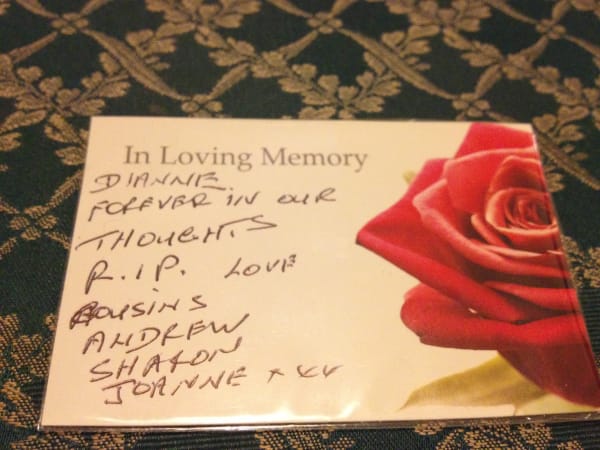 In Loving Memory
DIANNE
FOREVER IN OUR
THOUGHTS
R.I.P. LOVE
COUSINS
ANDREW
SHARON
JOANNE xxx